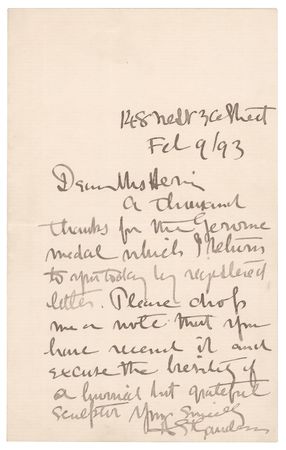 148 West 36 Street
Feb 9/93
Dear Mrs
A thousand
thanks for the Gerome
medal which I return
to you today by registered
letter. Please drop
me a note that you
have received it and
excuse the brevity of
a hurried but grateful
sculptor Yours Sincerely
A St Gaudens